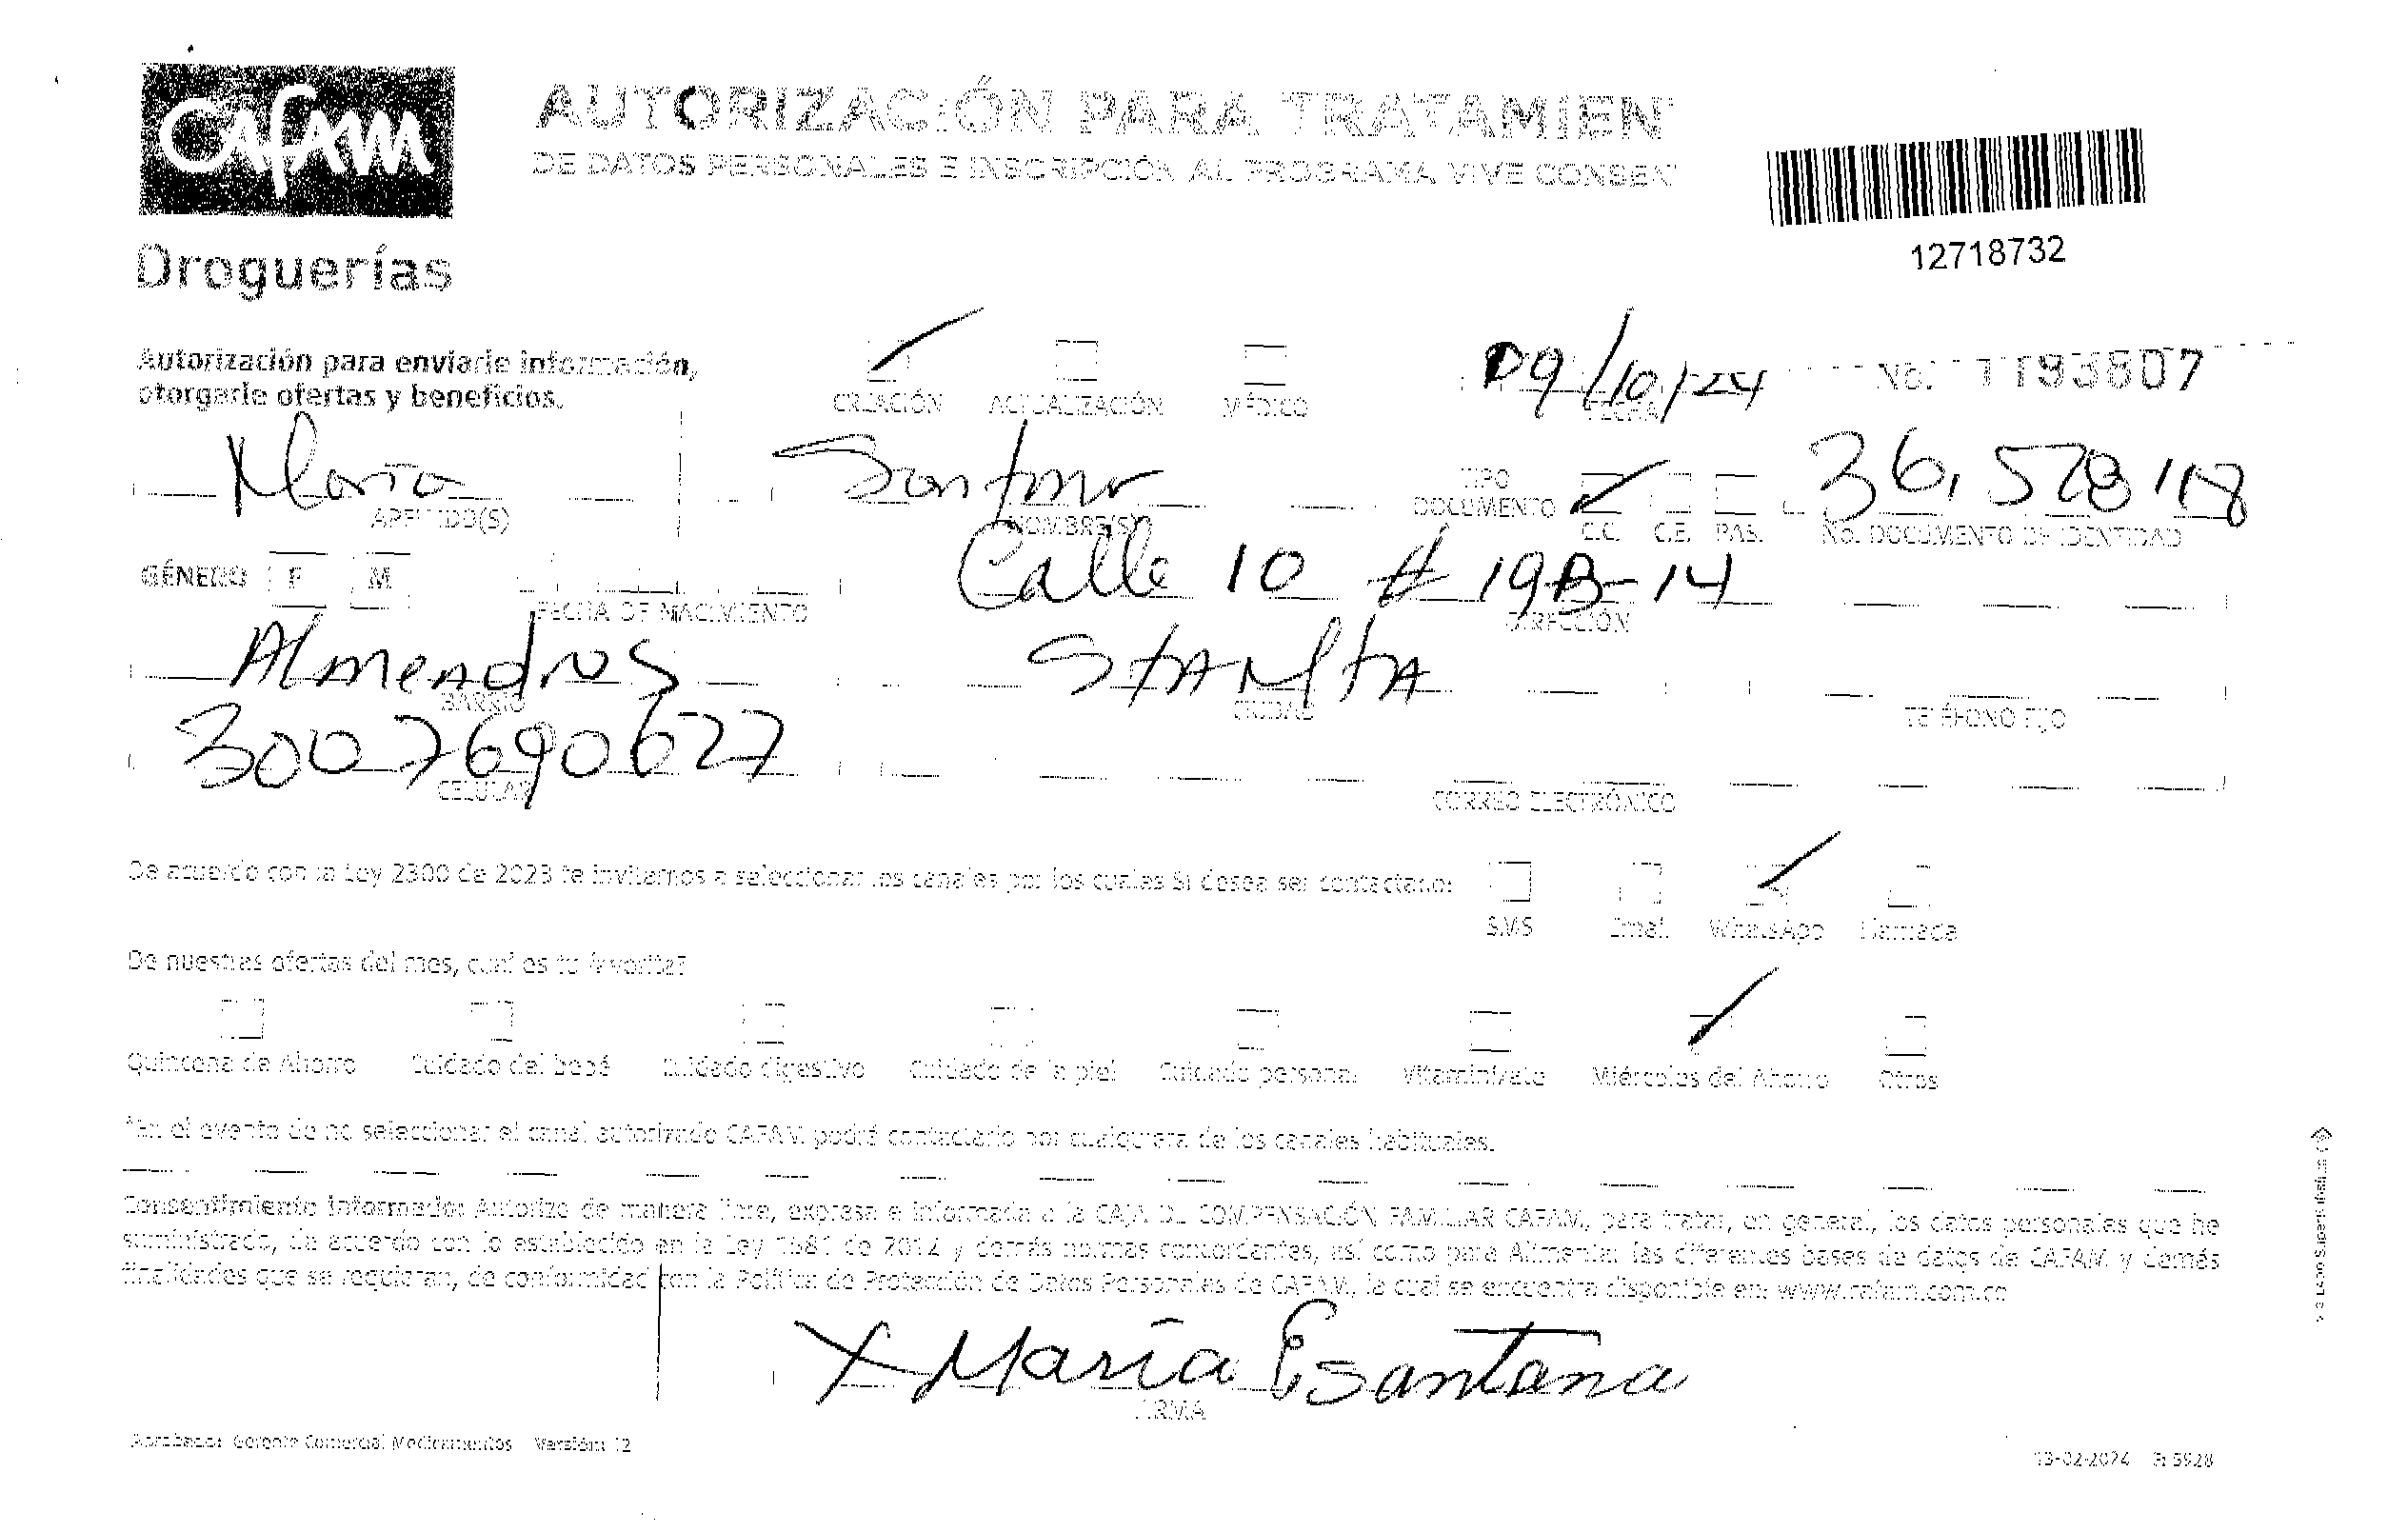 Cafam
Droguerías
AUTORIZACIÓN PARA TRATAMIEN
DE DATOS PERSONALES E INSCRIPCIÓN AL PROGRAMA VIVE CONSEN
12718732
Autorización para enviarle información,
otorgarle ofertas y beneficios.
CREACIÓN ACTUALIZACIÓN MÉDICO
09/10/24
FECHA
No. 1193807
Maria
APELLIDO(S)
Santana
NOMBRE(S)
TIPO
DOCUMENTO
C.C. C.E. PAS.
36,528,118
No. DOCUMENTO DE IDENTIDAD
GÉNERO F M
FECHA DE NACIMIENTO
Calle 10 # 19B-14
DIRECCIÓN
Almendros
BARRIO
StA MtA
CIUDAD
TELÉFONO FIJO
3007690627
CELULAR
CORREO ELECTRÓNICO
De acuerdo con la Ley 2300 de 2023 te invitamos a seleccionar los canales por los cuales SI desea ser contactado:
SMS Email WhatsApp Llamada
De nuestras ofertas del mes, cuál es tu favorita?
Quincena de Ahorro Cuidado del bebé Cuidado digestivo Cuidado de la piel Cuidado personal Vitamínízate Miércoles del Ahorro Otros
*En el evento de no seleccionar el canal autorizado CAFAM podrá contactarlo por cualquiera de los canales habituales.
Consentimiento Informado: Autorizo de manera libre, expresa e informada a la CAJA DE COMPENSACIÓN FAMILIAR CAFAM, para tratar, en general, los datos personales que he
suministrado, de acuerdo con lo establecido en la Ley 1581 de 2012 y demás normas concordantes, así como para Alimentar las diferentes bases de datos de CAFAM y demás
finalidades que se requieran, de conformidad con la Política de Protección de Datos Personales de CAFAM, la cual se encuentra disponible en: www.cafam.com.co
X María E Santana
FIRMA
Aprobado: Gerente Comercial Medicamentos Versión: 12
13-02-2024 F: 5928